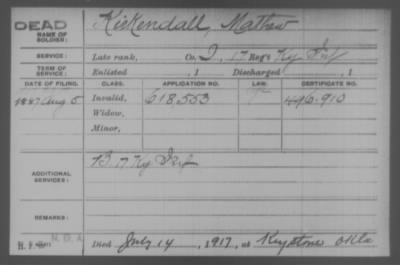 DEAD
NAME OF SOLDIER: Kirkendall, Mathew
SERVICE: Late rank, Co. I, 17 Reg't Ky Inf
TERM OF SERVICE: Enlisted , 1 Discharged , 1
DATE OF FILING. CLASS. APPLICATION NO. LAW. CERTIFICATE NO.
1887 Aug 5 Invalid, 618,553 446.910
Widow,
Minor,
ADDITIONAL SERVICES: B 17 Ky Inf
REMARKS:
N.O.A.
Died July 14, 1917, at Keystone Okla